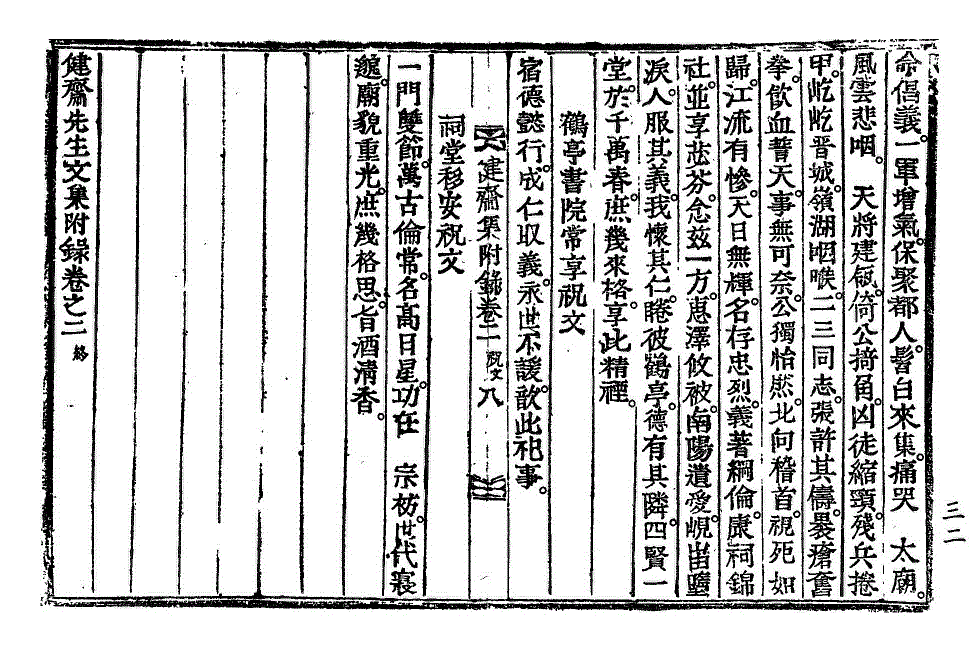 命倡義。一軍增氣。保聚都人。髫白來集。痛哭 太廟。
風雲悲咽。 天將建瓴。倚公掎角。凶徒縮頸。殘兵捲
甲。屹屹晋城。嶺湖咽喉。二三同志。張許其儔。褁瘡奮
拳。歃血誓天。事無可奈。公獨怡然。北向稽首。視死如
歸。江流有慘。天日無輝。名存忠烈。義著綱倫。康祠錦
社。並享苾芬。念玆一方。惠澤攸被。南陽遺愛。峴峀墮
淚。人服其義。我懷其仁。睠彼鶴亭。德有其隣。四賢一
堂。於千萬春。庶幾來格。享此精禋。
鶴亭書院常享祝文
宿德懿行。成仁取義。永世不諼。歆此祀事。
健齋集附錄卷二 祝文 八
祠堂移安祝文
一門雙節。萬古倫常。名高日星。功在 宗祊。世代寢
邈。廟貌重光。庶幾格思。旨酒淸香。
健齋先生文集附錄卷之二 終
三二